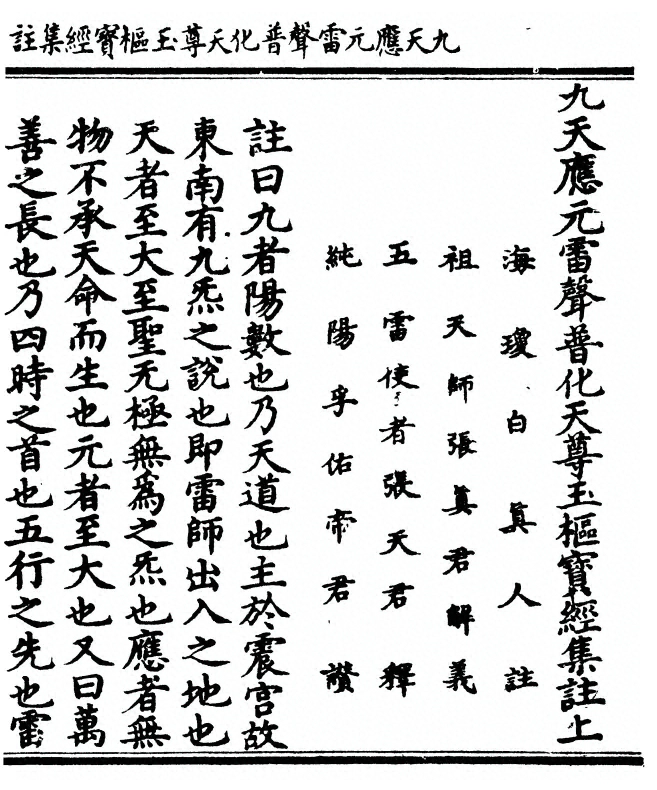 九天應元雷聲普化天尊玉樞寶經集註
九天應元雷聲普化天尊玉樞寶經集註上
海瓊白眞人註
祖天師張眞君解義
五雷使者張天君釋
純陽孚佑帝君讚
註曰九者陽數也乃天道也主於震宮故
東南有九炁之說也即雷師出入之地也
天者至大至聖无極無爲之炁也應者無
物不承天命而生也元者至大也又曰萬
善之長也乃四時之首也五行之先也雷